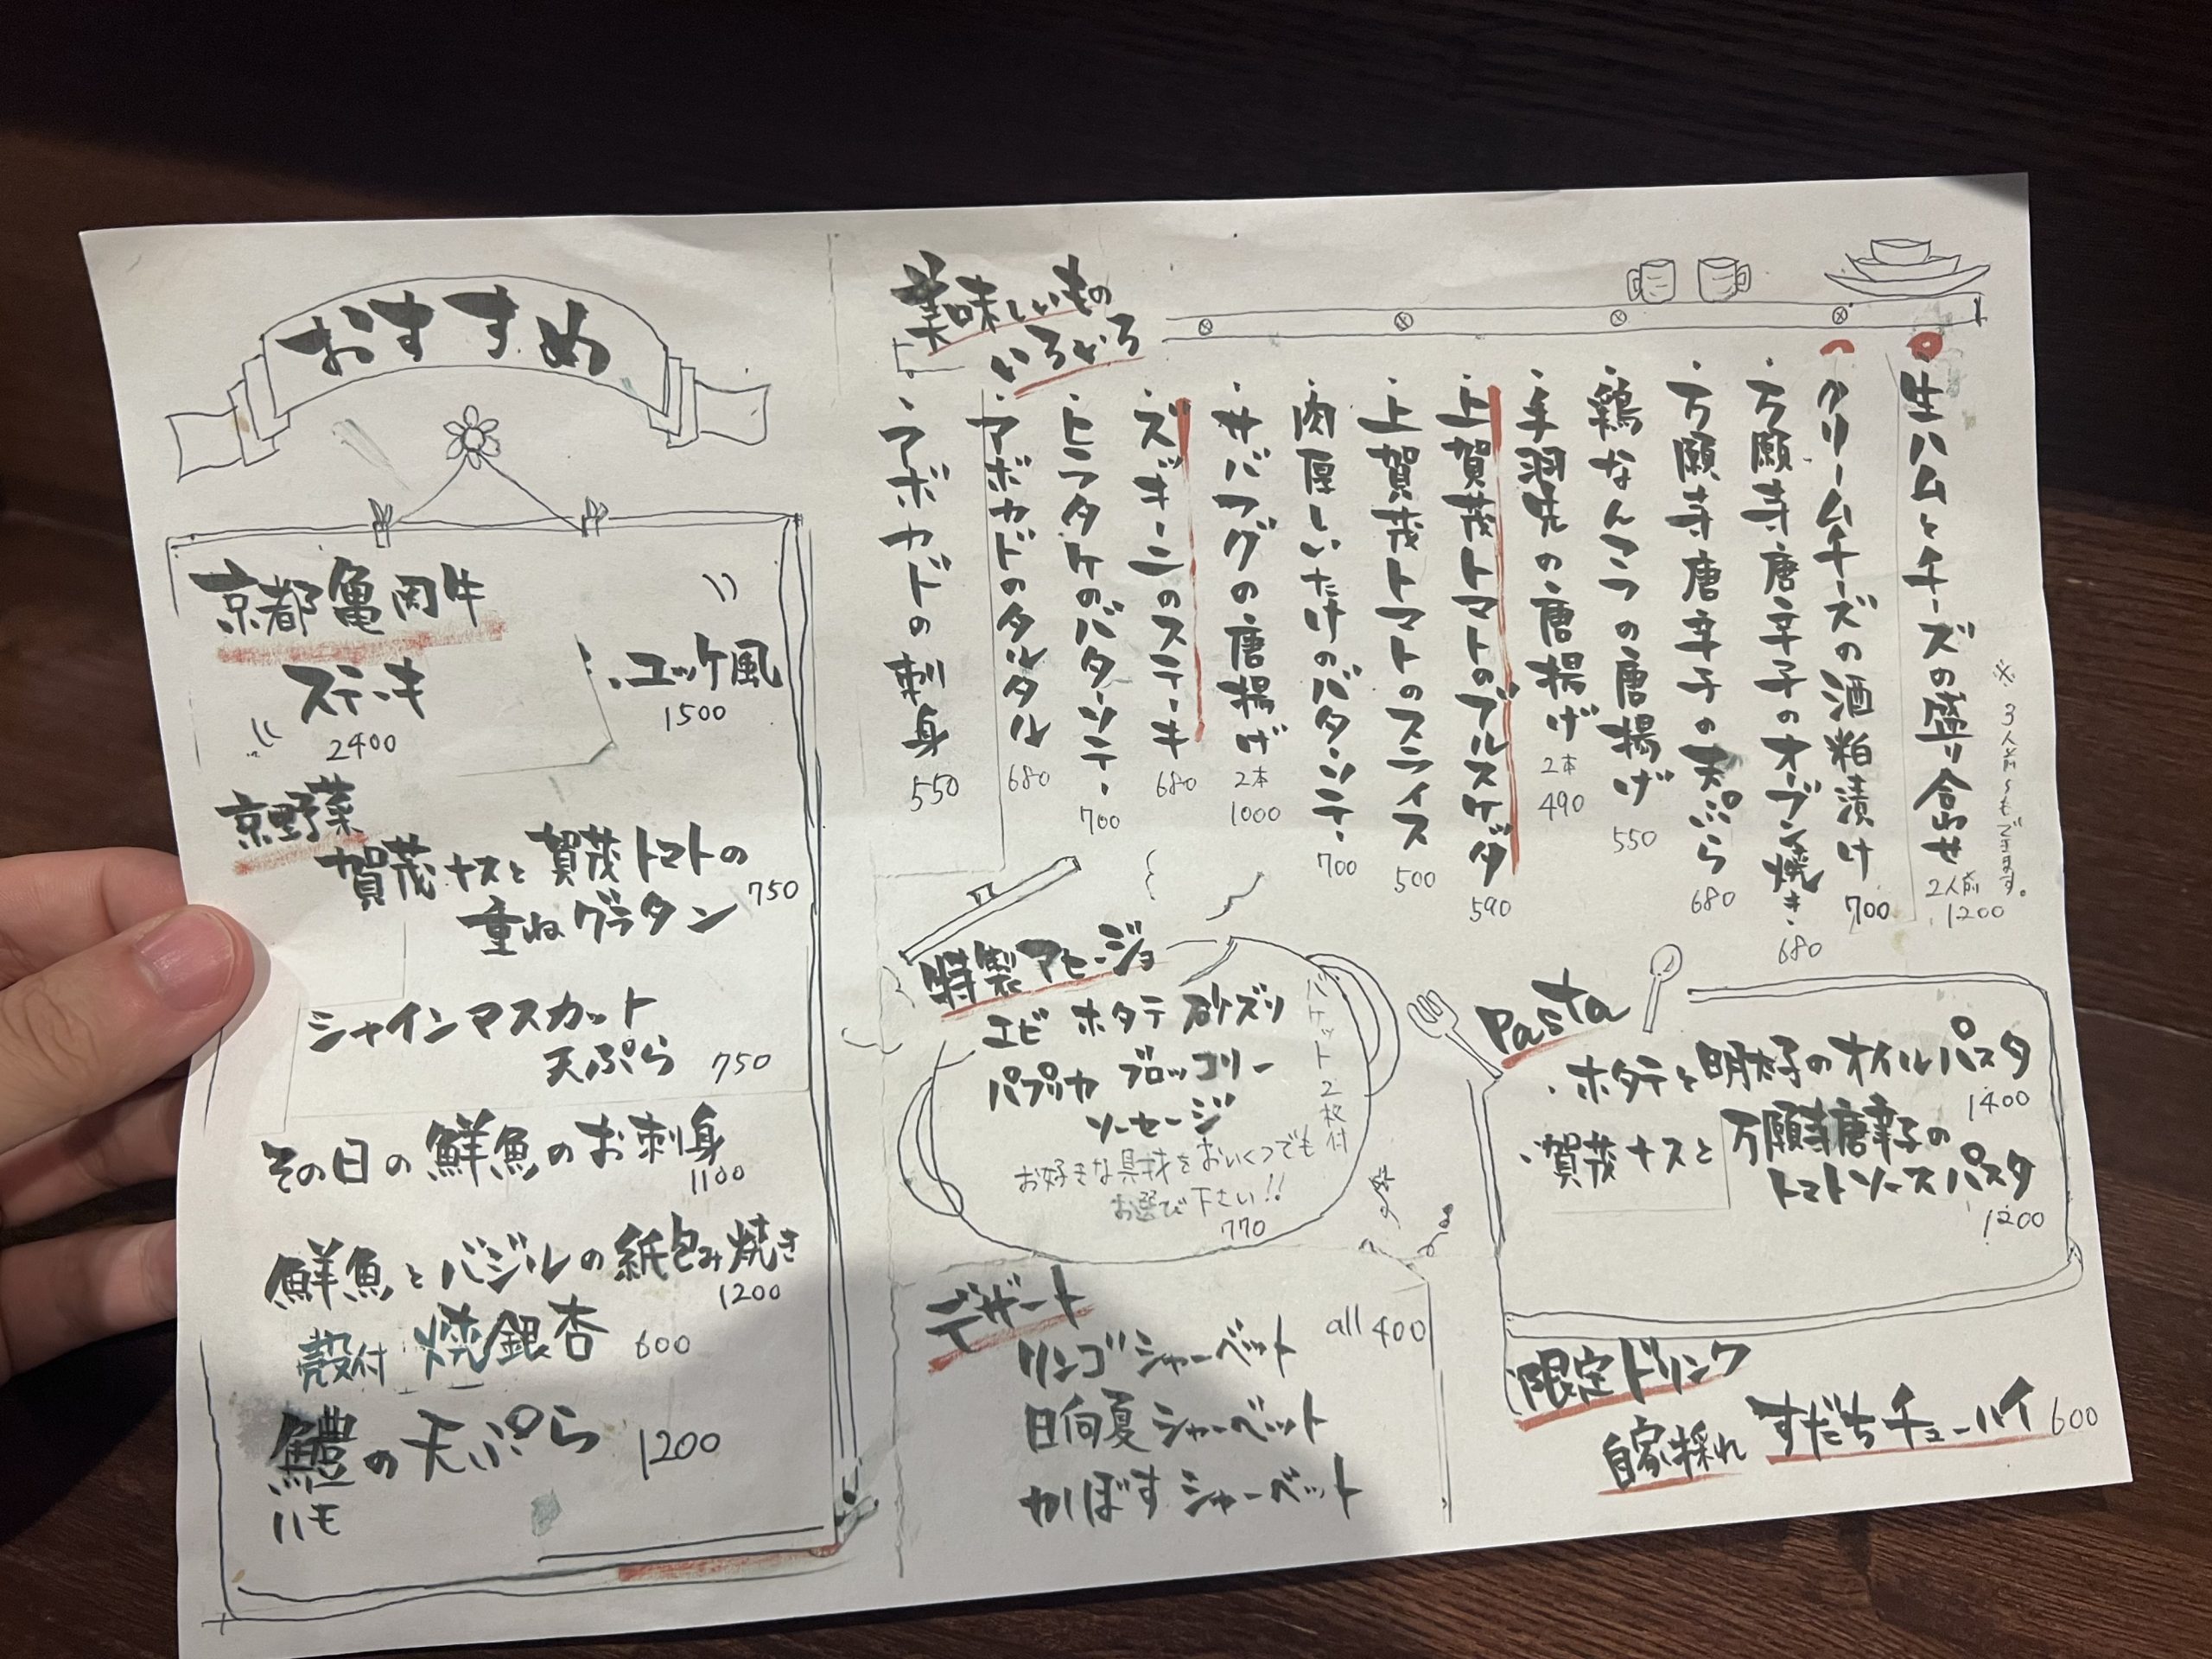 おすすめ
京都亀岡牛
ステーキ
2400
・ユッケ風
1500
京野菜
賀茂ナスと賀茂トマトの
重ねグラタン
750
シャインマスカット
天ぷら 750
その日の鮮魚のお刺身
1100
鮮魚とバジルの紙包み焼き
1200
殻付 焼銀杏 600
鱧の天ぷら 1200
ハモ
美味しいもの
いろいろ
・生ハムとチーズの盛り合せ 2人前 1200
※3人前〜もできます。
・クリームチーズの酒粕漬け 700
・万願寺唐辛子のオーブン焼き・ 680
・万願寺唐辛子の天ぷら 680
・鶏なんこつの唐揚げ 550
・手羽先の唐揚げ 2本 490
・上賀茂トマトのブルスケッタ 590
・上賀茂トマトのスライス 500
・肉厚しいたけのバターソテー 700
・サバフグの唐揚げ 2本 1000
・ズッキーニのステーキ 680
・ヒラタケのバターソテー 700
・アボカドのタルタル 680
・アボカドの刺身 550
特製アヒージョ
エビ ホタテ 砂ズリ
パプリカ ブロッコリー
ソーセージ
お好きな具材をおいくつでも
お選び下さい!!
770
バケット2枚付
Pasta
・ホタテと明太子のオイルパスタ
1400
・賀茂ナスと万願寺唐辛子の
トマトソースパスタ
1200
デザート
all 400
リンゴシャーベット
日向夏シャーベット
かぼすシャーベット
限定ドリンク
自家採れ すだちチューハイ 600